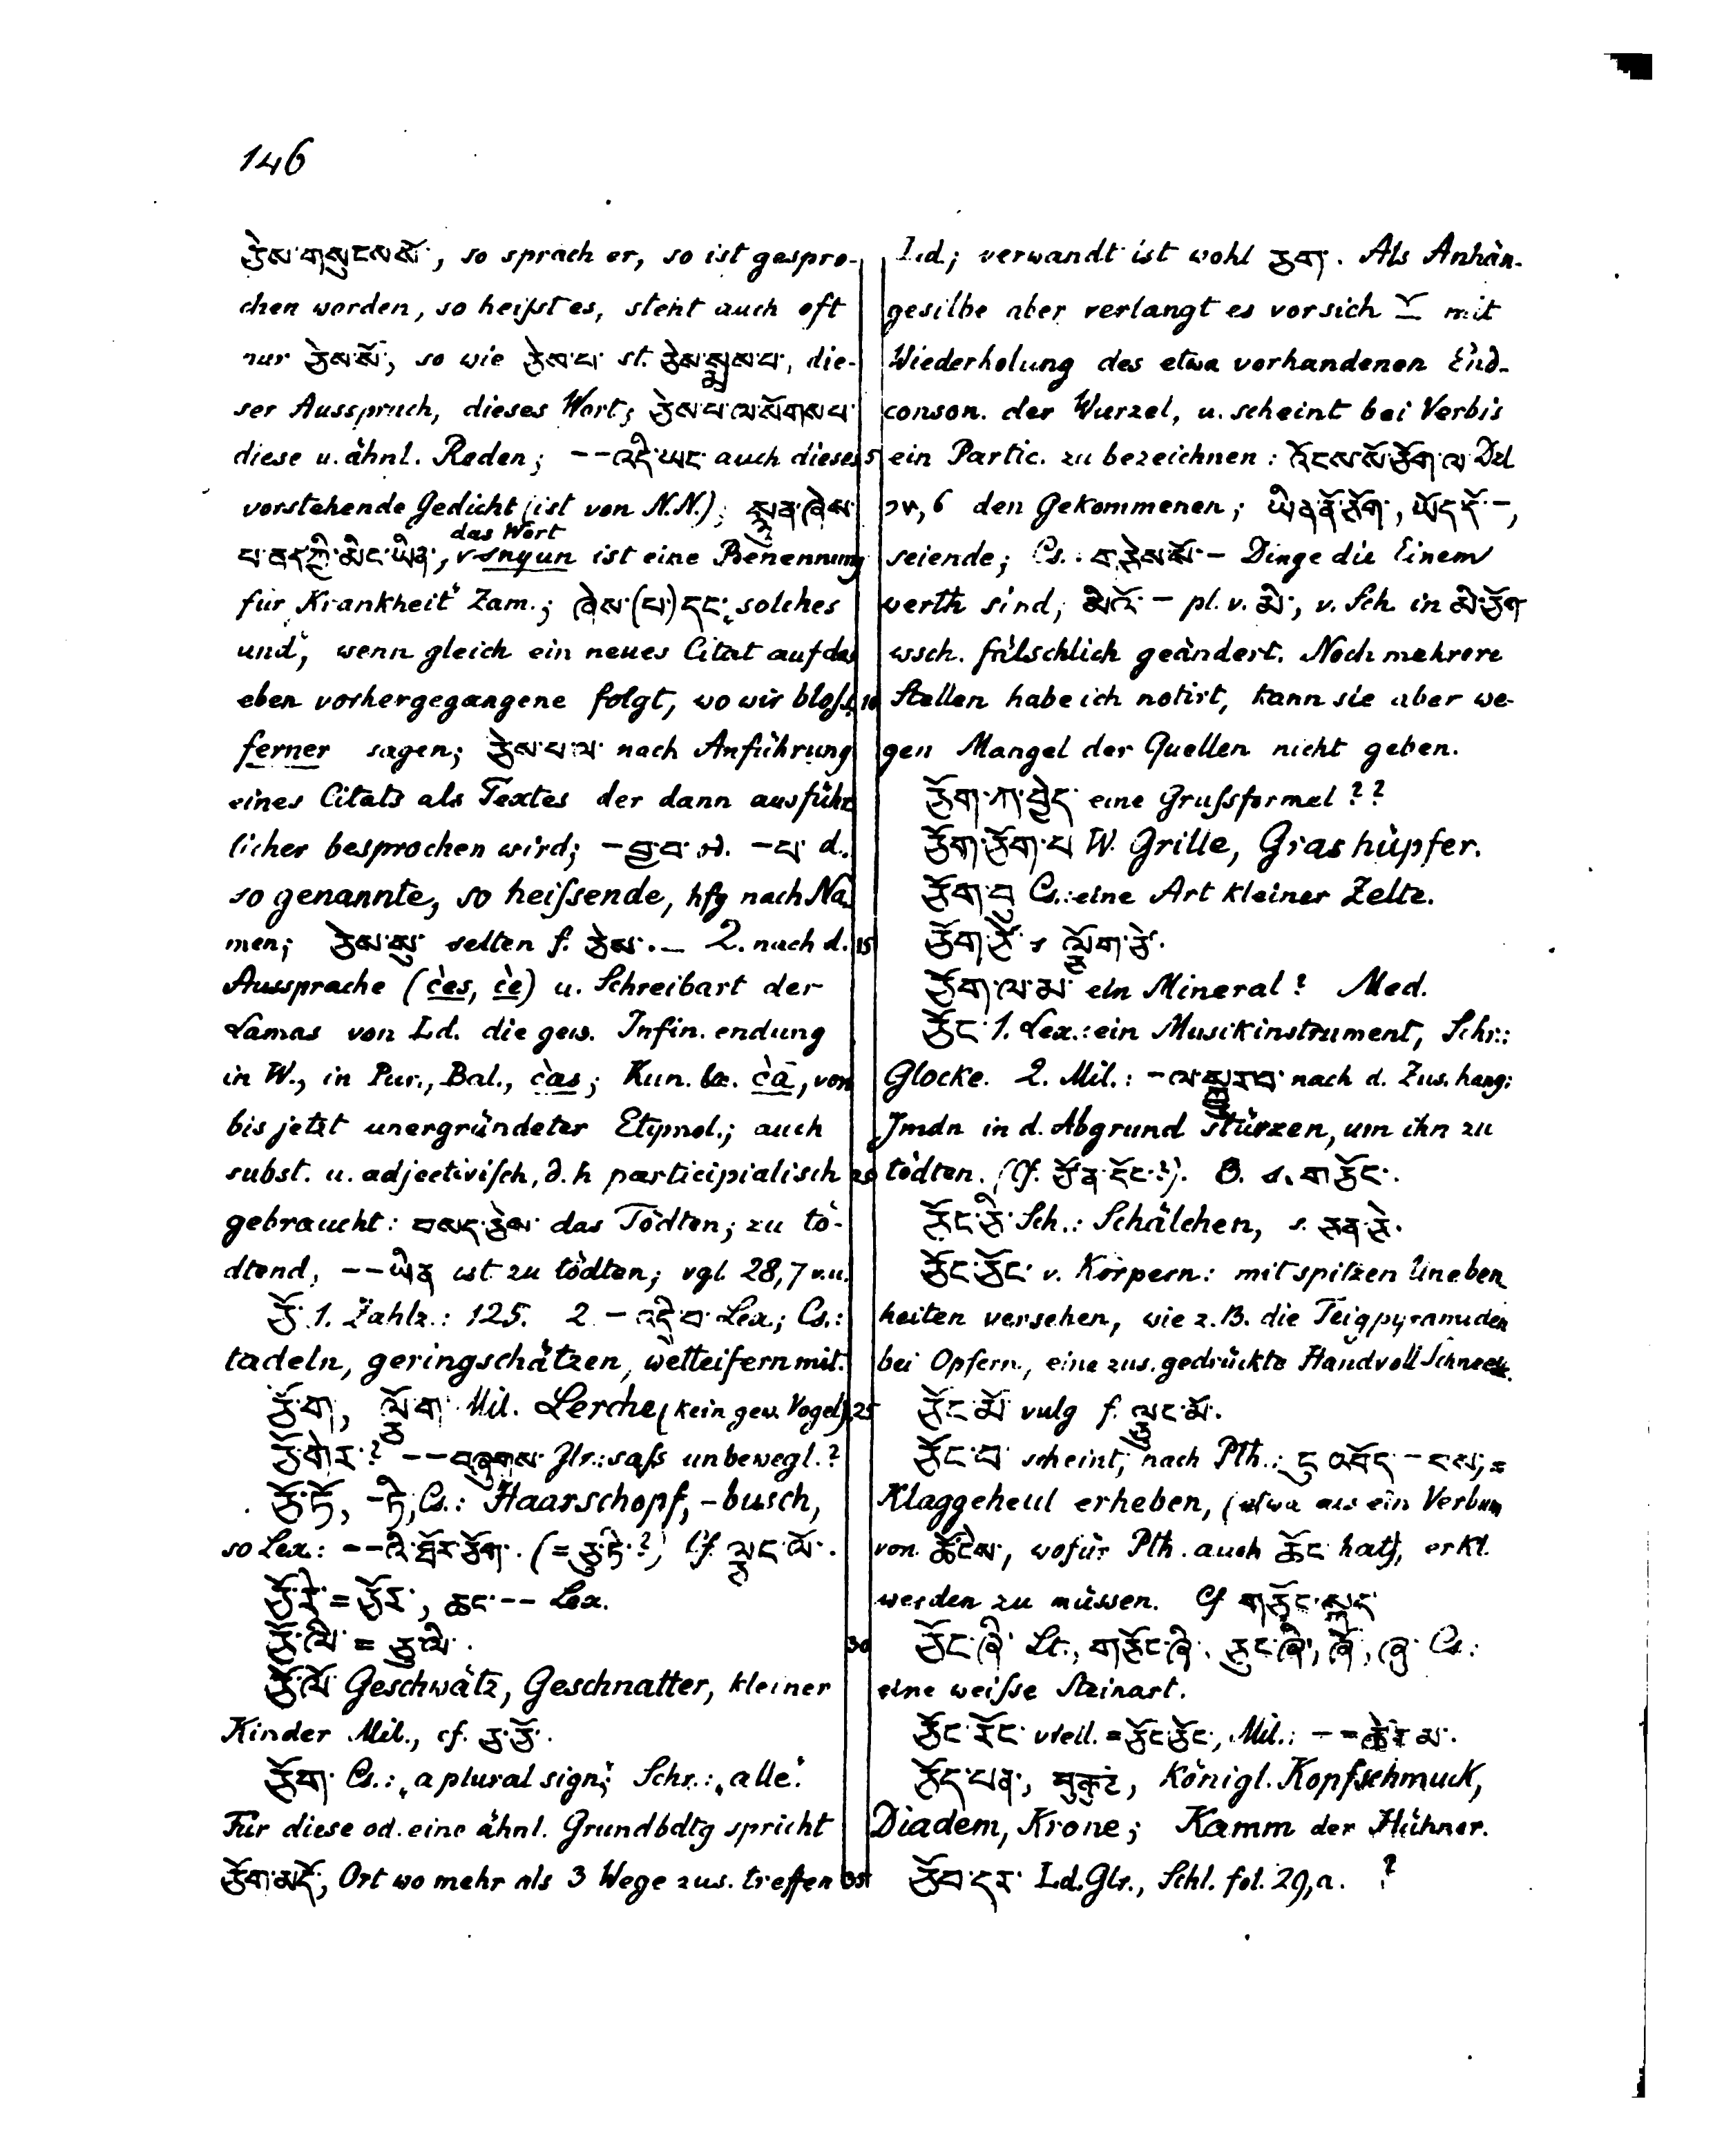 146
ཅེས་གསུངས་སོ་, so sprach er, so ist gespro-
chen worden, so heißst es, steht auch oft
nur ཅེས་སོ་, so wie ཅེས་པ་ st. ཅེས་སྨྲས་པ་, die-
ser Ausspruch, dieses Wort; ཅེས་པ་ལ་སོགས་པ་
diese u. ähnl. Reden; -- འདི་ཡང་ auch dieses 5
vorstehende Gedicht (ist von N.N.); སྙུན་ཞེས་
པ་ནད་ཀྱི་མིང་ཡིན་, „das Wort snyun ist eine Benennung
für Krankheit" Zam.; ཞེས་(པ་)དང་ „solches
und", wenn gleich ein neues Citat auf das
eben vorhergegangene folgt, wo wir bloß 10
ferner sagen; ཅེས་པ་ལ་ nach Anführung
eines Citats als Textes der dann ausführ
licher besprochen wird; – བྱ་བ་ od. – པ་ d.
so genannte, so heißsende, hfg nach Na
men; ཅེས་སུ་ selten f. ཅེས་. – 2. nach d. 15
Aussprache (c̀es, c̀e) u. Schreibart der
Lamas von Ld. die gew. Infin. endung
in W., in Pur., Bal., c̀as; Kun. c̀ā, von
bis jetzt unergründeter Etymol.; auch
subst. u. adjectivisch, d. h participialisch 20
gebraucht: བསད་ཅེས་ das Tödten; zu tö-
dtend, -- ཡིན ist zu tödten; vgl. 28,7 v.u.
ཅོ་ 1. Zahlz.: 125. 2 – འདྲི་བ་ Lex; Cs.:
tadeln, geringschätzen, wetteifern mit.
ཅོ་ག, ལྕོ་ག་ Mil. Lerche (kein gew. Vogel) 25
ཅོ་གེར་? -- བཞུགས་ Glr.: saß unbewegl.?
ཅོ་ཏོ, – ཏི, Cs.: Haarschopf, -busch,
so Lex: -- འི་ཐོར་ཅོག་. (= ཅུ་ཏི་?) Cf. ལྕང་ལོ་.
ཅོ་རེ་ = ཅོར་, ཆང་ -- Lex.
ཅོ་ལི་ = ཅུ་ལི་. 30
ཅོ་ལོ Geschwätz, Geschnatter, kleiner
Kinder Mil., cf. ཅ་ཅོ་.
ཅོག་ Cs.: „a plural sign;" Schr.: „alle".
Für diese od. eine ähnl. Grundbdtg spricht
ཅོག་མདོ་, Ort wo mehr als 3 Wege zus. treffen 35
Ld; verwandt ist wohl ཅག་. Als Anhän-
gesilbe aber verlangt es vor sich ོ mit
Wiederholung des etwa vorhandenen End-
conson. der Wurzel, u. scheint bei Verbis
ein Partic. zu bezeichnen: འོངས་སོ་ཅོག་ལ Dzl
༢༧, 6 den Gekommenen; ཡིན་ནོ་ཅོག་, ཡོད་དོ་ –,
seiende; Cs.: – Dinge die Einem
werth sind; མི་འོ་ – pl. v. མི་, v. Sch. in མི་ཅོག
wsch. fälschlich geändert. Noch mehrere
Stellen habe ich notirt, kann sie aber we-
gen Mangel der Quellen nicht geben.
ཅོག་ཀ་བྱེད་ eine Grußformel ??
ཅོག་ཅོག་པ W. Grille, Grashüpfer.
ཅོག་བུ Cs.: eine Art kleiner Zelte.
ཅོག་རྩེ་ s ལྕོག་རྩེ་.
ཅོག་ལ་མ་ ein Mineral? Med.
ཅོང་ 1. Lex.: ein Musikinstrument, Schr.:
Glocke. 2. Mil.: – ལ་སྐྱུར་བ་ nach d. Zus. hang:
Jmdn in d. Abgrund stürzen, um ihn zu
tödten. (Cf. ཚོན་དོང་?). 3. s. གཅོང་.
ཅོང་ཅེ་ Sch.: Schälchen, s. ཅན་ཅེ་.
ཅོང་ཅོང་ v. Körpern: mit spitzen Uneben
heiten versehen, wie z. B. die Teigpyramiden
bei Opfern, eine zus. gedrückte Handvoll Schnee.
ཅོང་མོ་ vulg f. ལྕུང་མོ་.
ཅོང་བ་ scheint, nach Pth.: ངུ་འབོད་ – ངས་; =
Klaggeheul erheben, (etwa als ein Verbum
von ཅོངས་, wofür Pth. auch ཆོང་ hat), erkl.
werden zu müssen. Cf གཅོང་སྐད་
ཅོང་ཞི་ Lt., གཅོང་ཞི་, ཅུང་ཞི་, ཞོ་, ཞུ་ Cs.:
eine weiße Steinart.
ཅོང་རོང་ viell. = ཅོང་ཅོང་, Mil.: – – = མ་.
ཅོད་པན་, मुकुट, königl. Kopfschmuck,
Diadem, Krone; Kamm der Hühner.
ཅོབ་དར་ Ld. Glr., Schl. fol. 29, a. ?